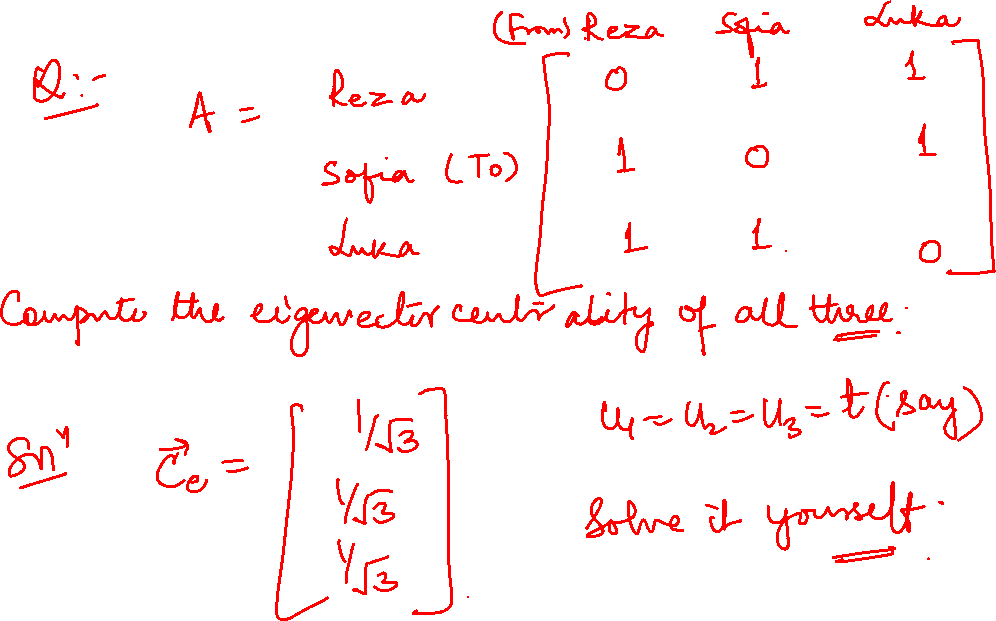 (From) Reza Sofia Luka
Q:- A = Reza 0 1 1
Sofia (To) 1 0 1
Luka 1 1. 0
Compute the eigenvector centrality of all three.
Snʸ C⃗e = [1/√3 1/√3 1/√3] u₁ = u₂ = u₃ = t (say)
Solve it yourself.